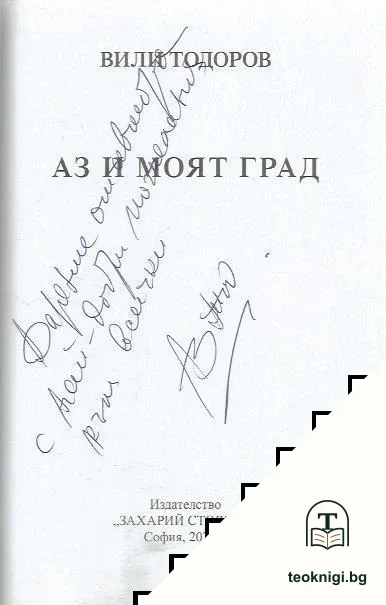 ВИЛИ ТОДОРОВ
АЗ И МОЯТ ГРАД
Дарение от автора
с най-добри пожелания
към всички
Издателство
„ЗАХАРИЙ
София,
T
teoknigi.bg